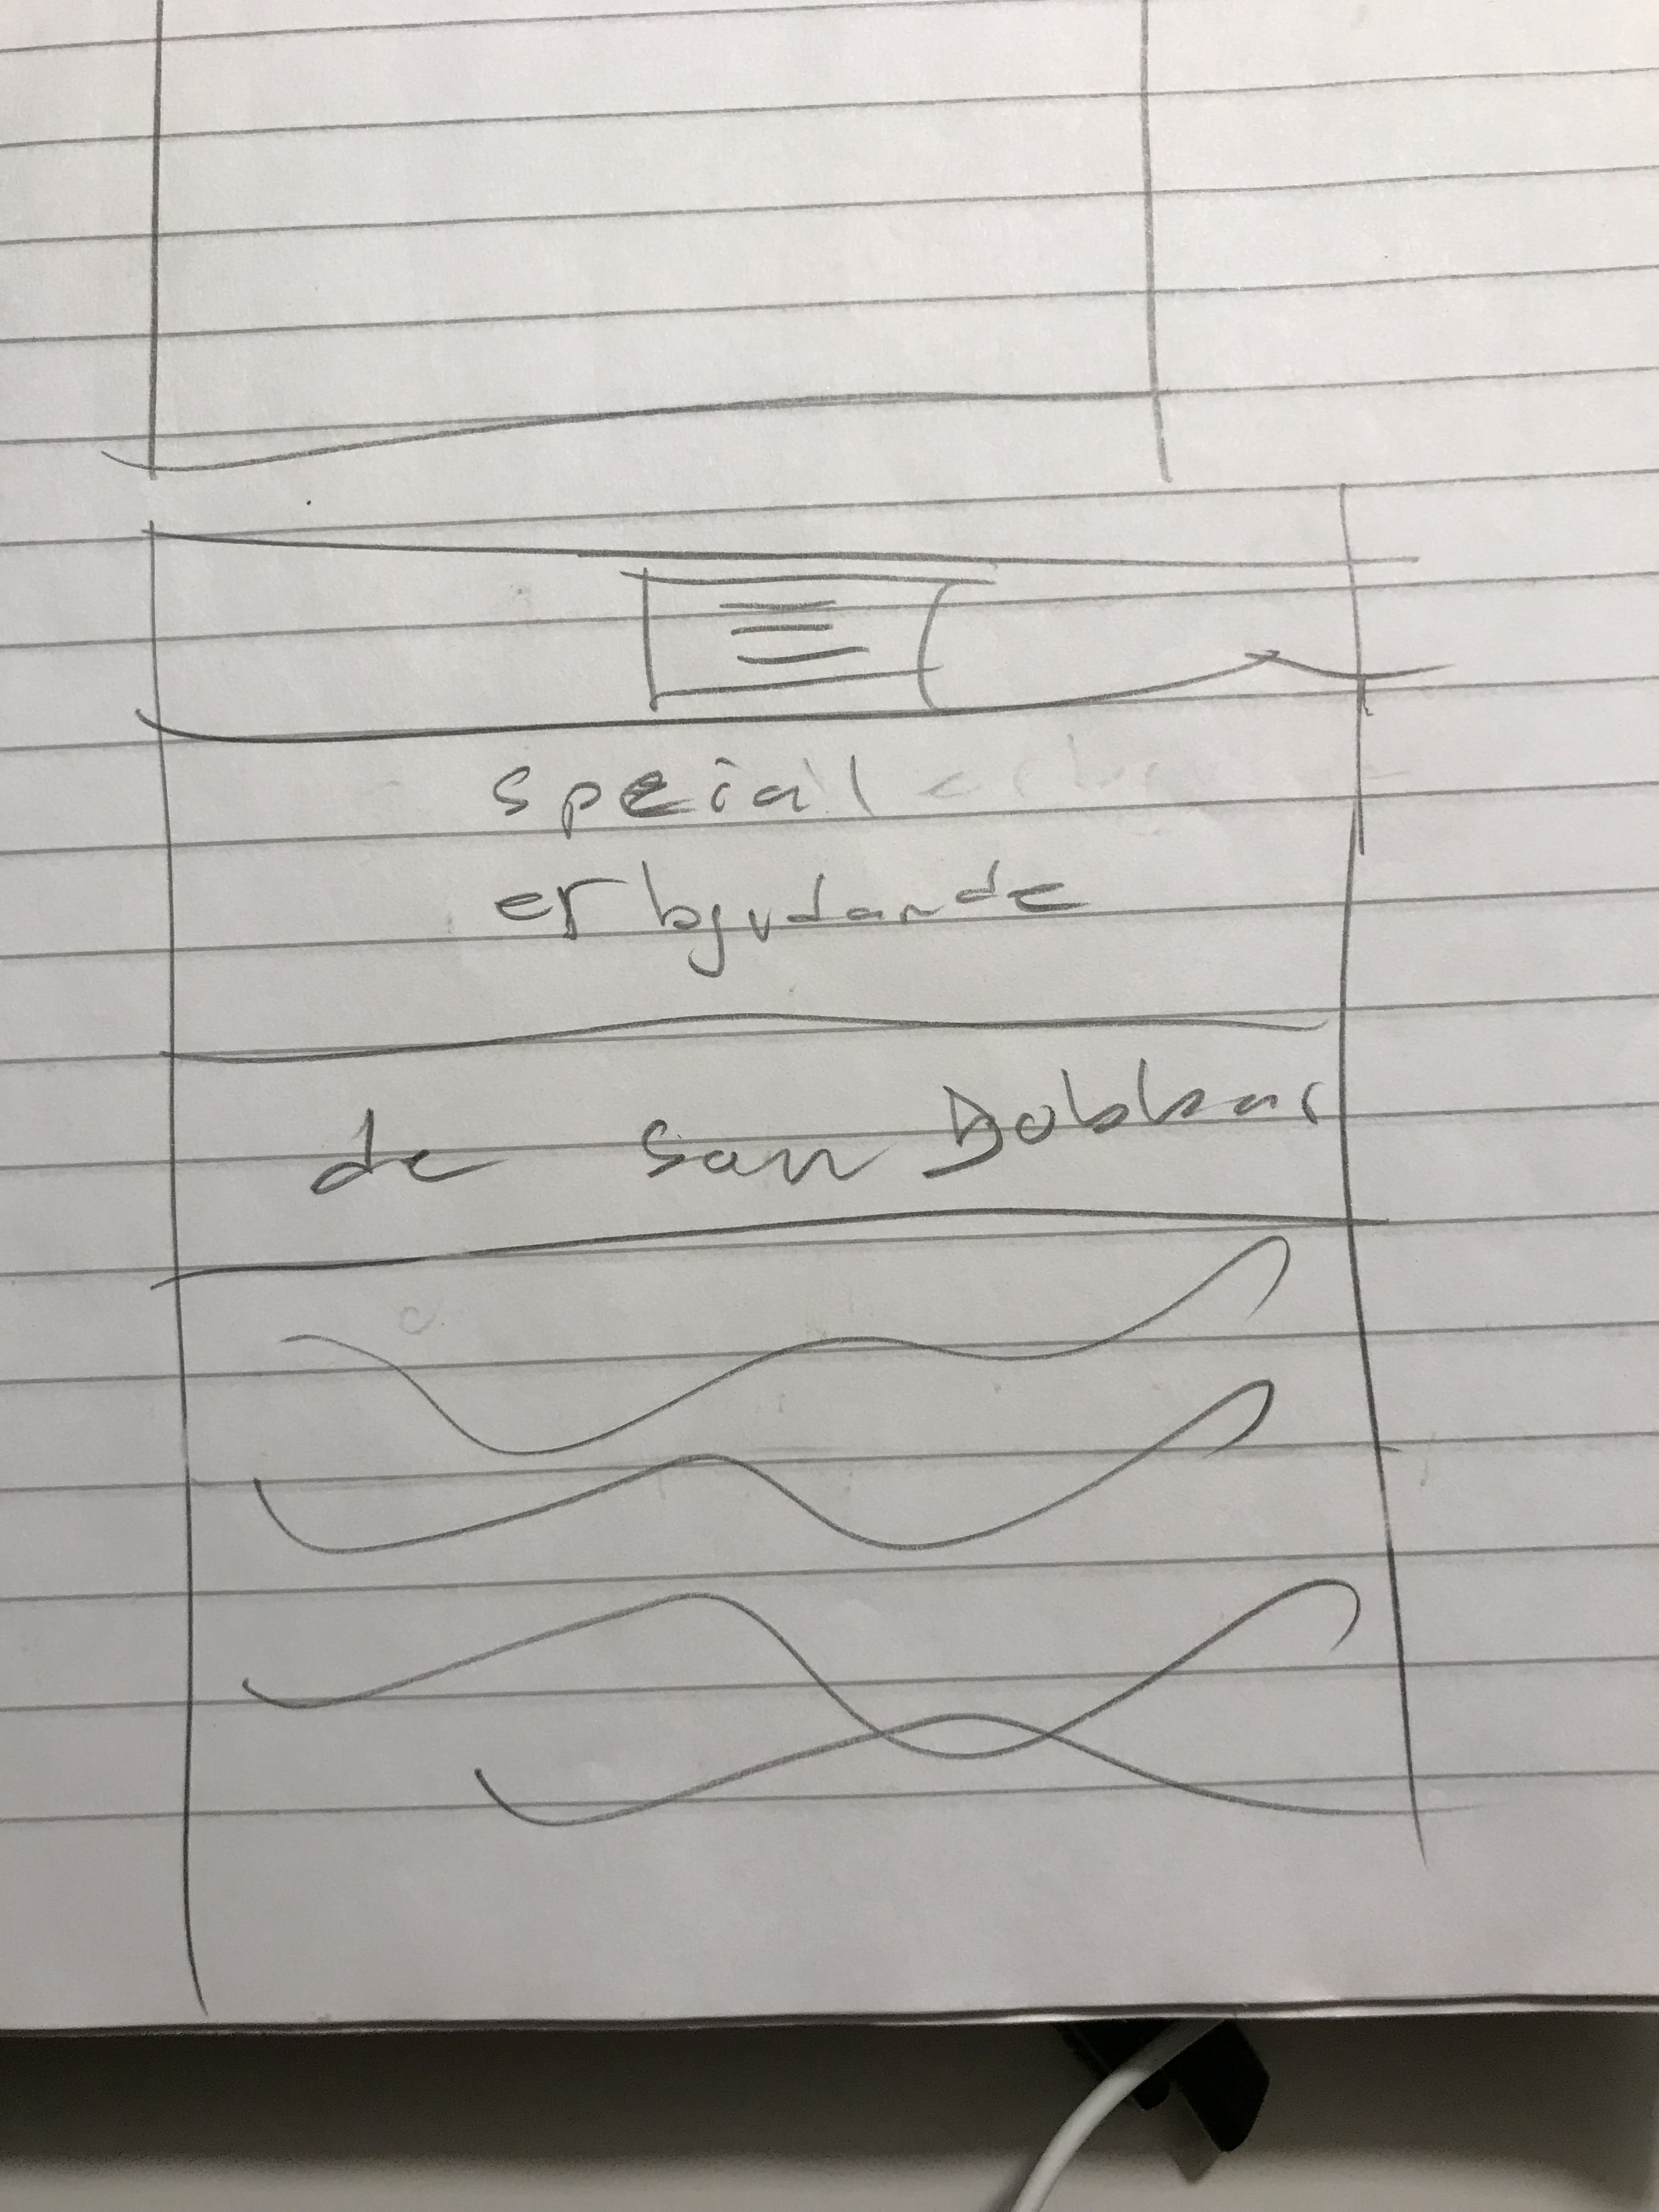 speial
erbjudande
de som Bokkar